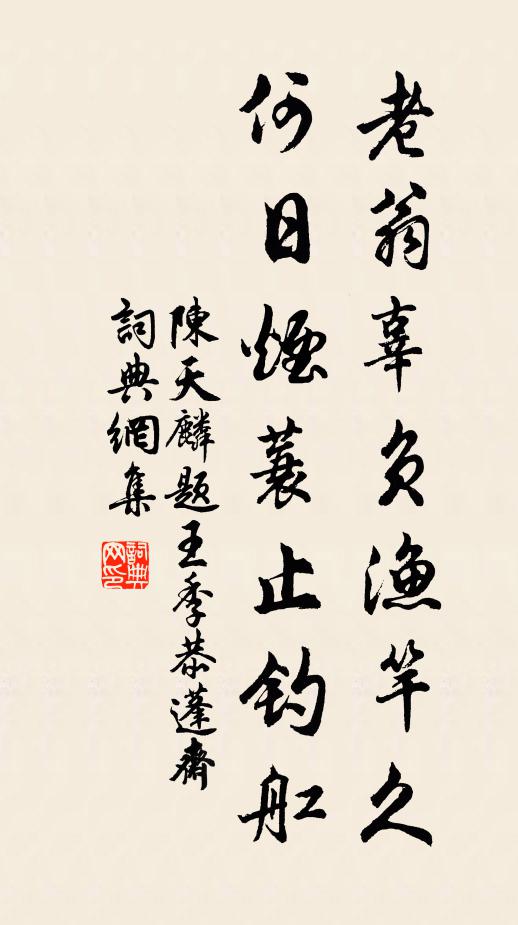 老翁辜負漁竿久
何日煙蓑止釣舡
陳天麟題王季恭蓬齋
詞典網集
詞典网印